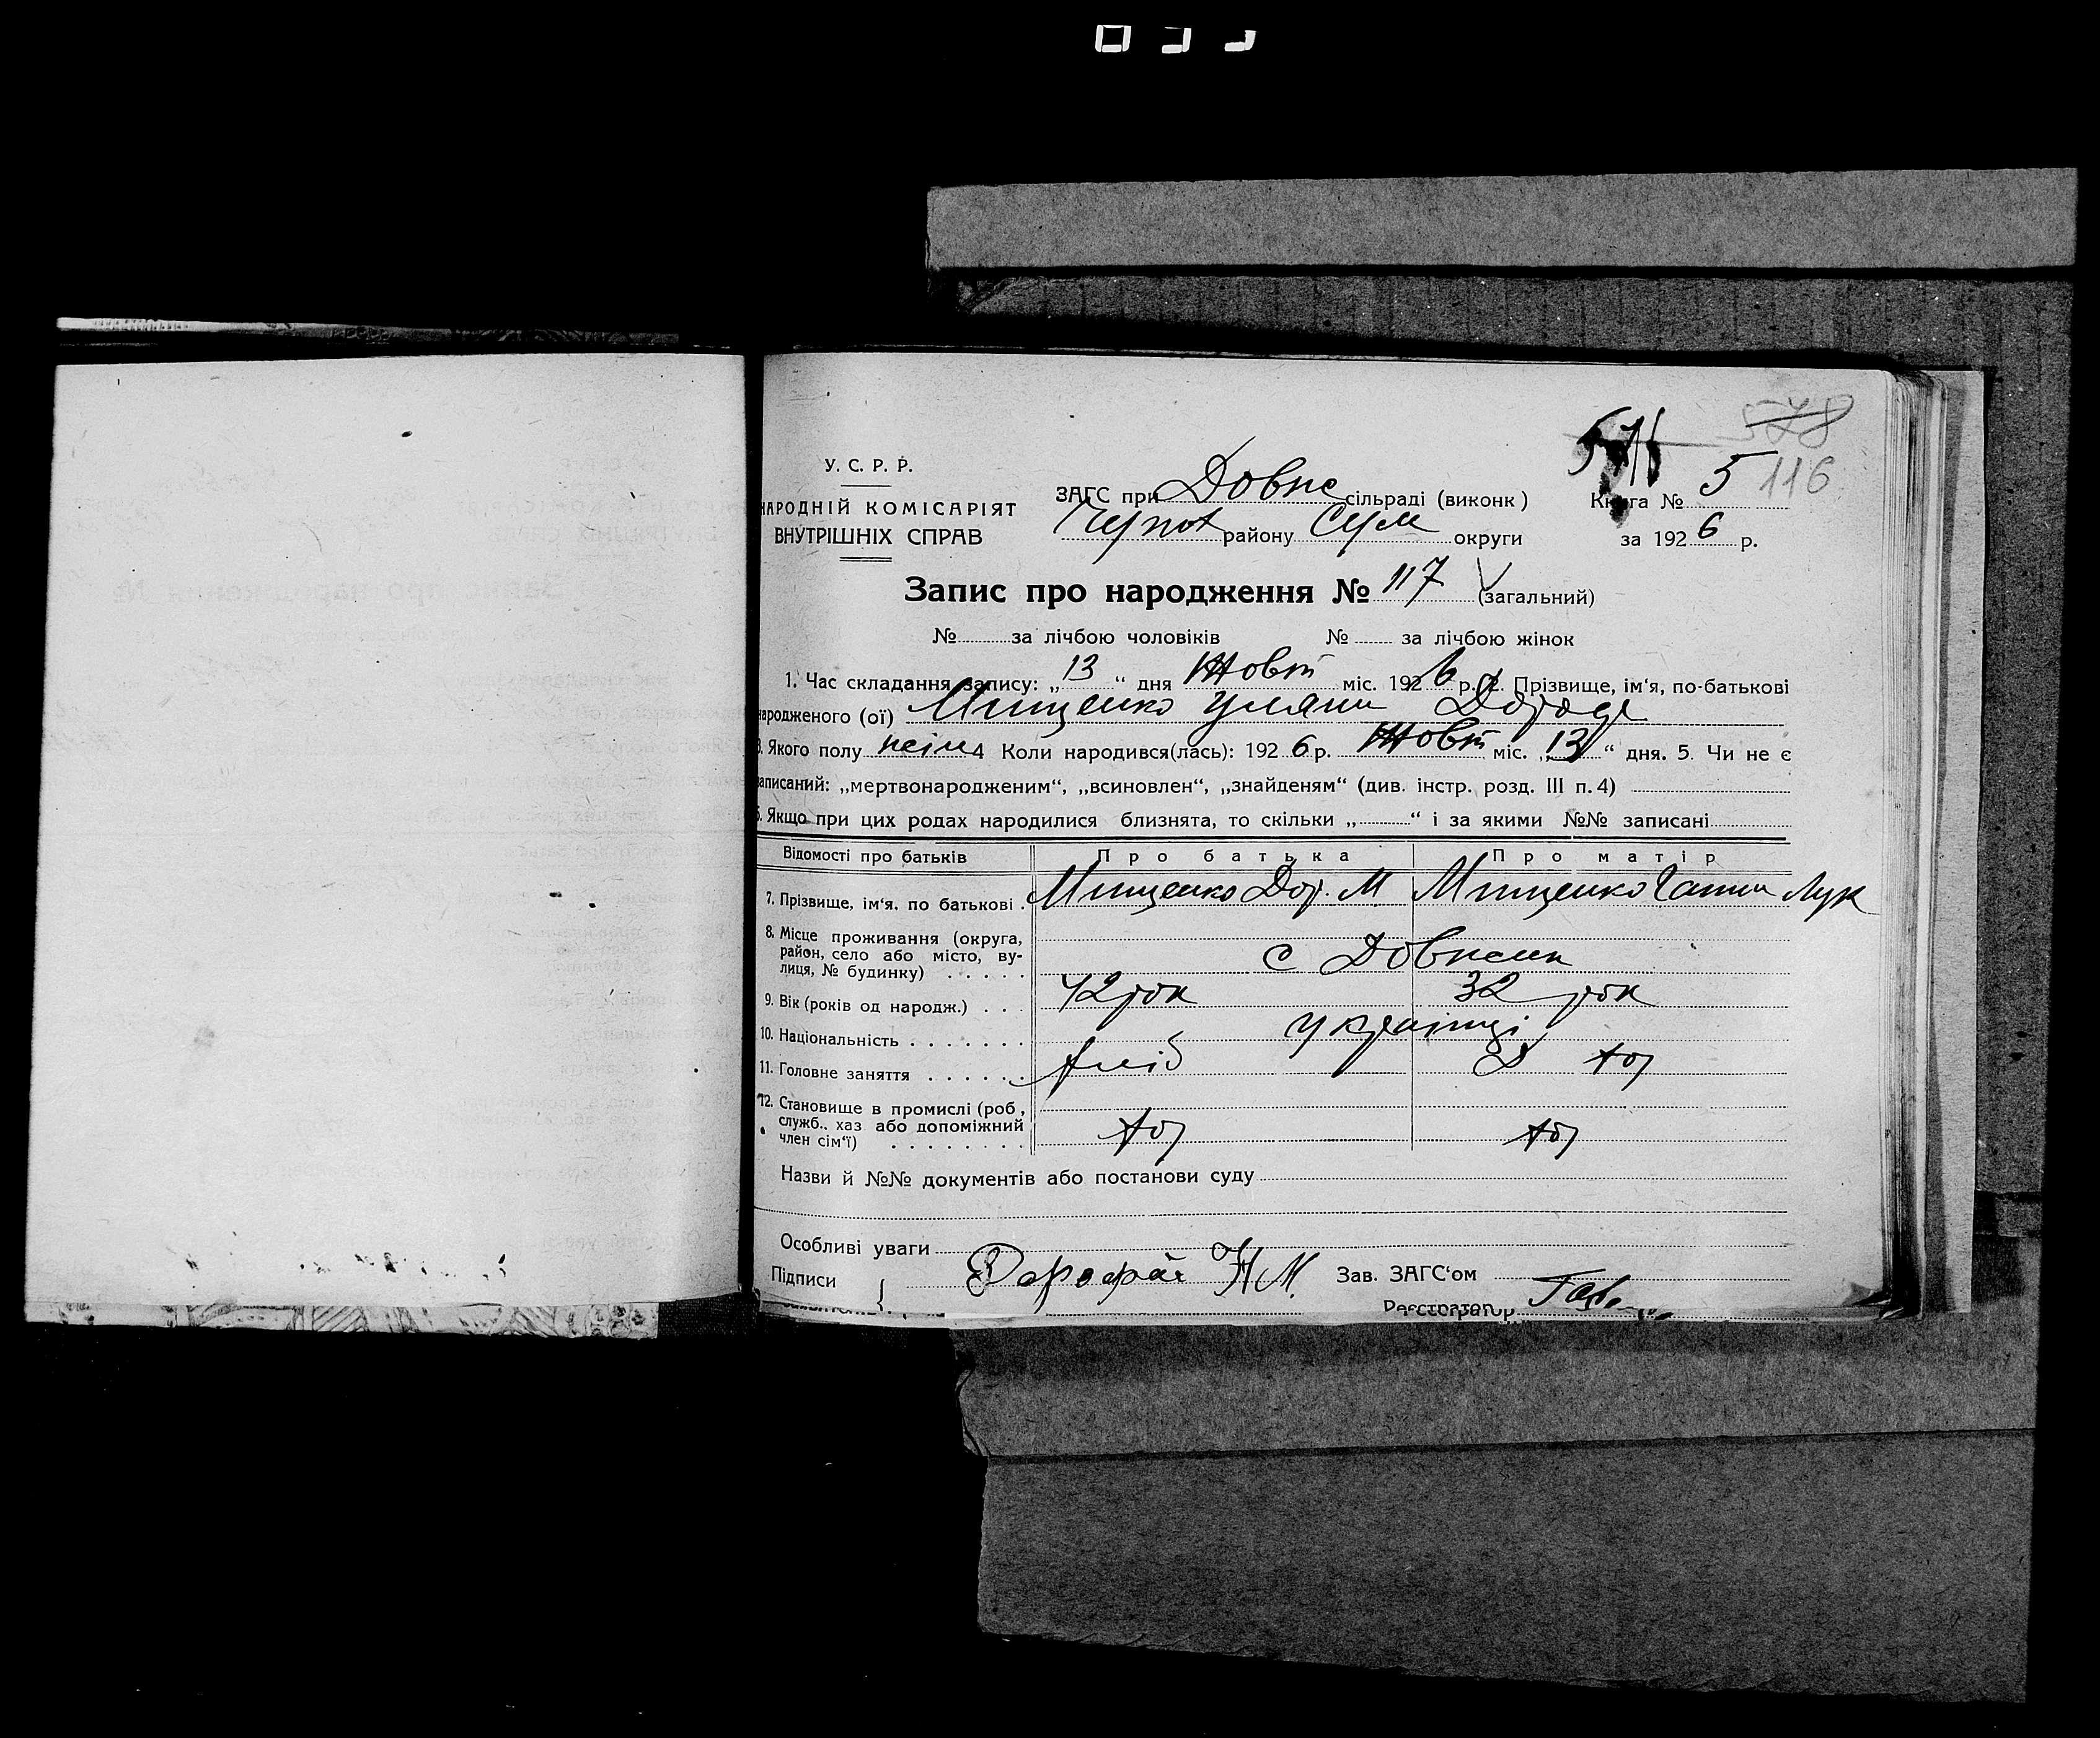 578
У. С. Р. Р.
НАРОДНІЙ КОМІСАРІЯТ
ВНУТРІШНІХ СПРАВ
ЗАГС при Довж сільраді (виконк)
району Сум округи
Книга № 5 116
за 1926 р.
Запис про народження № 117 (загальний)
№ за лічбою чоловіків № за лічбою жінок
1. Час складання запису: „13“ дня Жовт міс. 1926 р. 2. Прізвище, ім‘я, по-батькові
народженого (ої) Мищенко Уляни Дороф
3. Якого полу жін 4 Коли народився(лась): 1926 р. Жовт міс. „13“ дня. 5. Чи не є
записаний: „мертвонародженим“, „всиновлен“, „знайденям“ (див. інстр. розд. III п. 4)
6. Якщо при цих родах народилися близнята, то скільки „ “ і за якими №№ записані
Відомості про батьків Про батька Про матір
7. Прізвище, ім‘я, по батькові . Мищенко Дор. М. Мищенко Ганни Лук
8. Місце проживання (округа,
район, село або місто, ву-
лиця, № будинку) . . . . . с
9. Вік (років од народж.) . . . 42 рок 32 рок
10. Національність . . . . . . . українці
11. Головне заняття . . . . . . хліб
12. Становище в промислі (роб,
служб., хаз або допоміжний
член сім‘ї) . . . . . . . .
Назви й №№ документів або постанови суду
Особливі уваги
Підписи { Зав. ЗАГС‘ом
Реєстратор